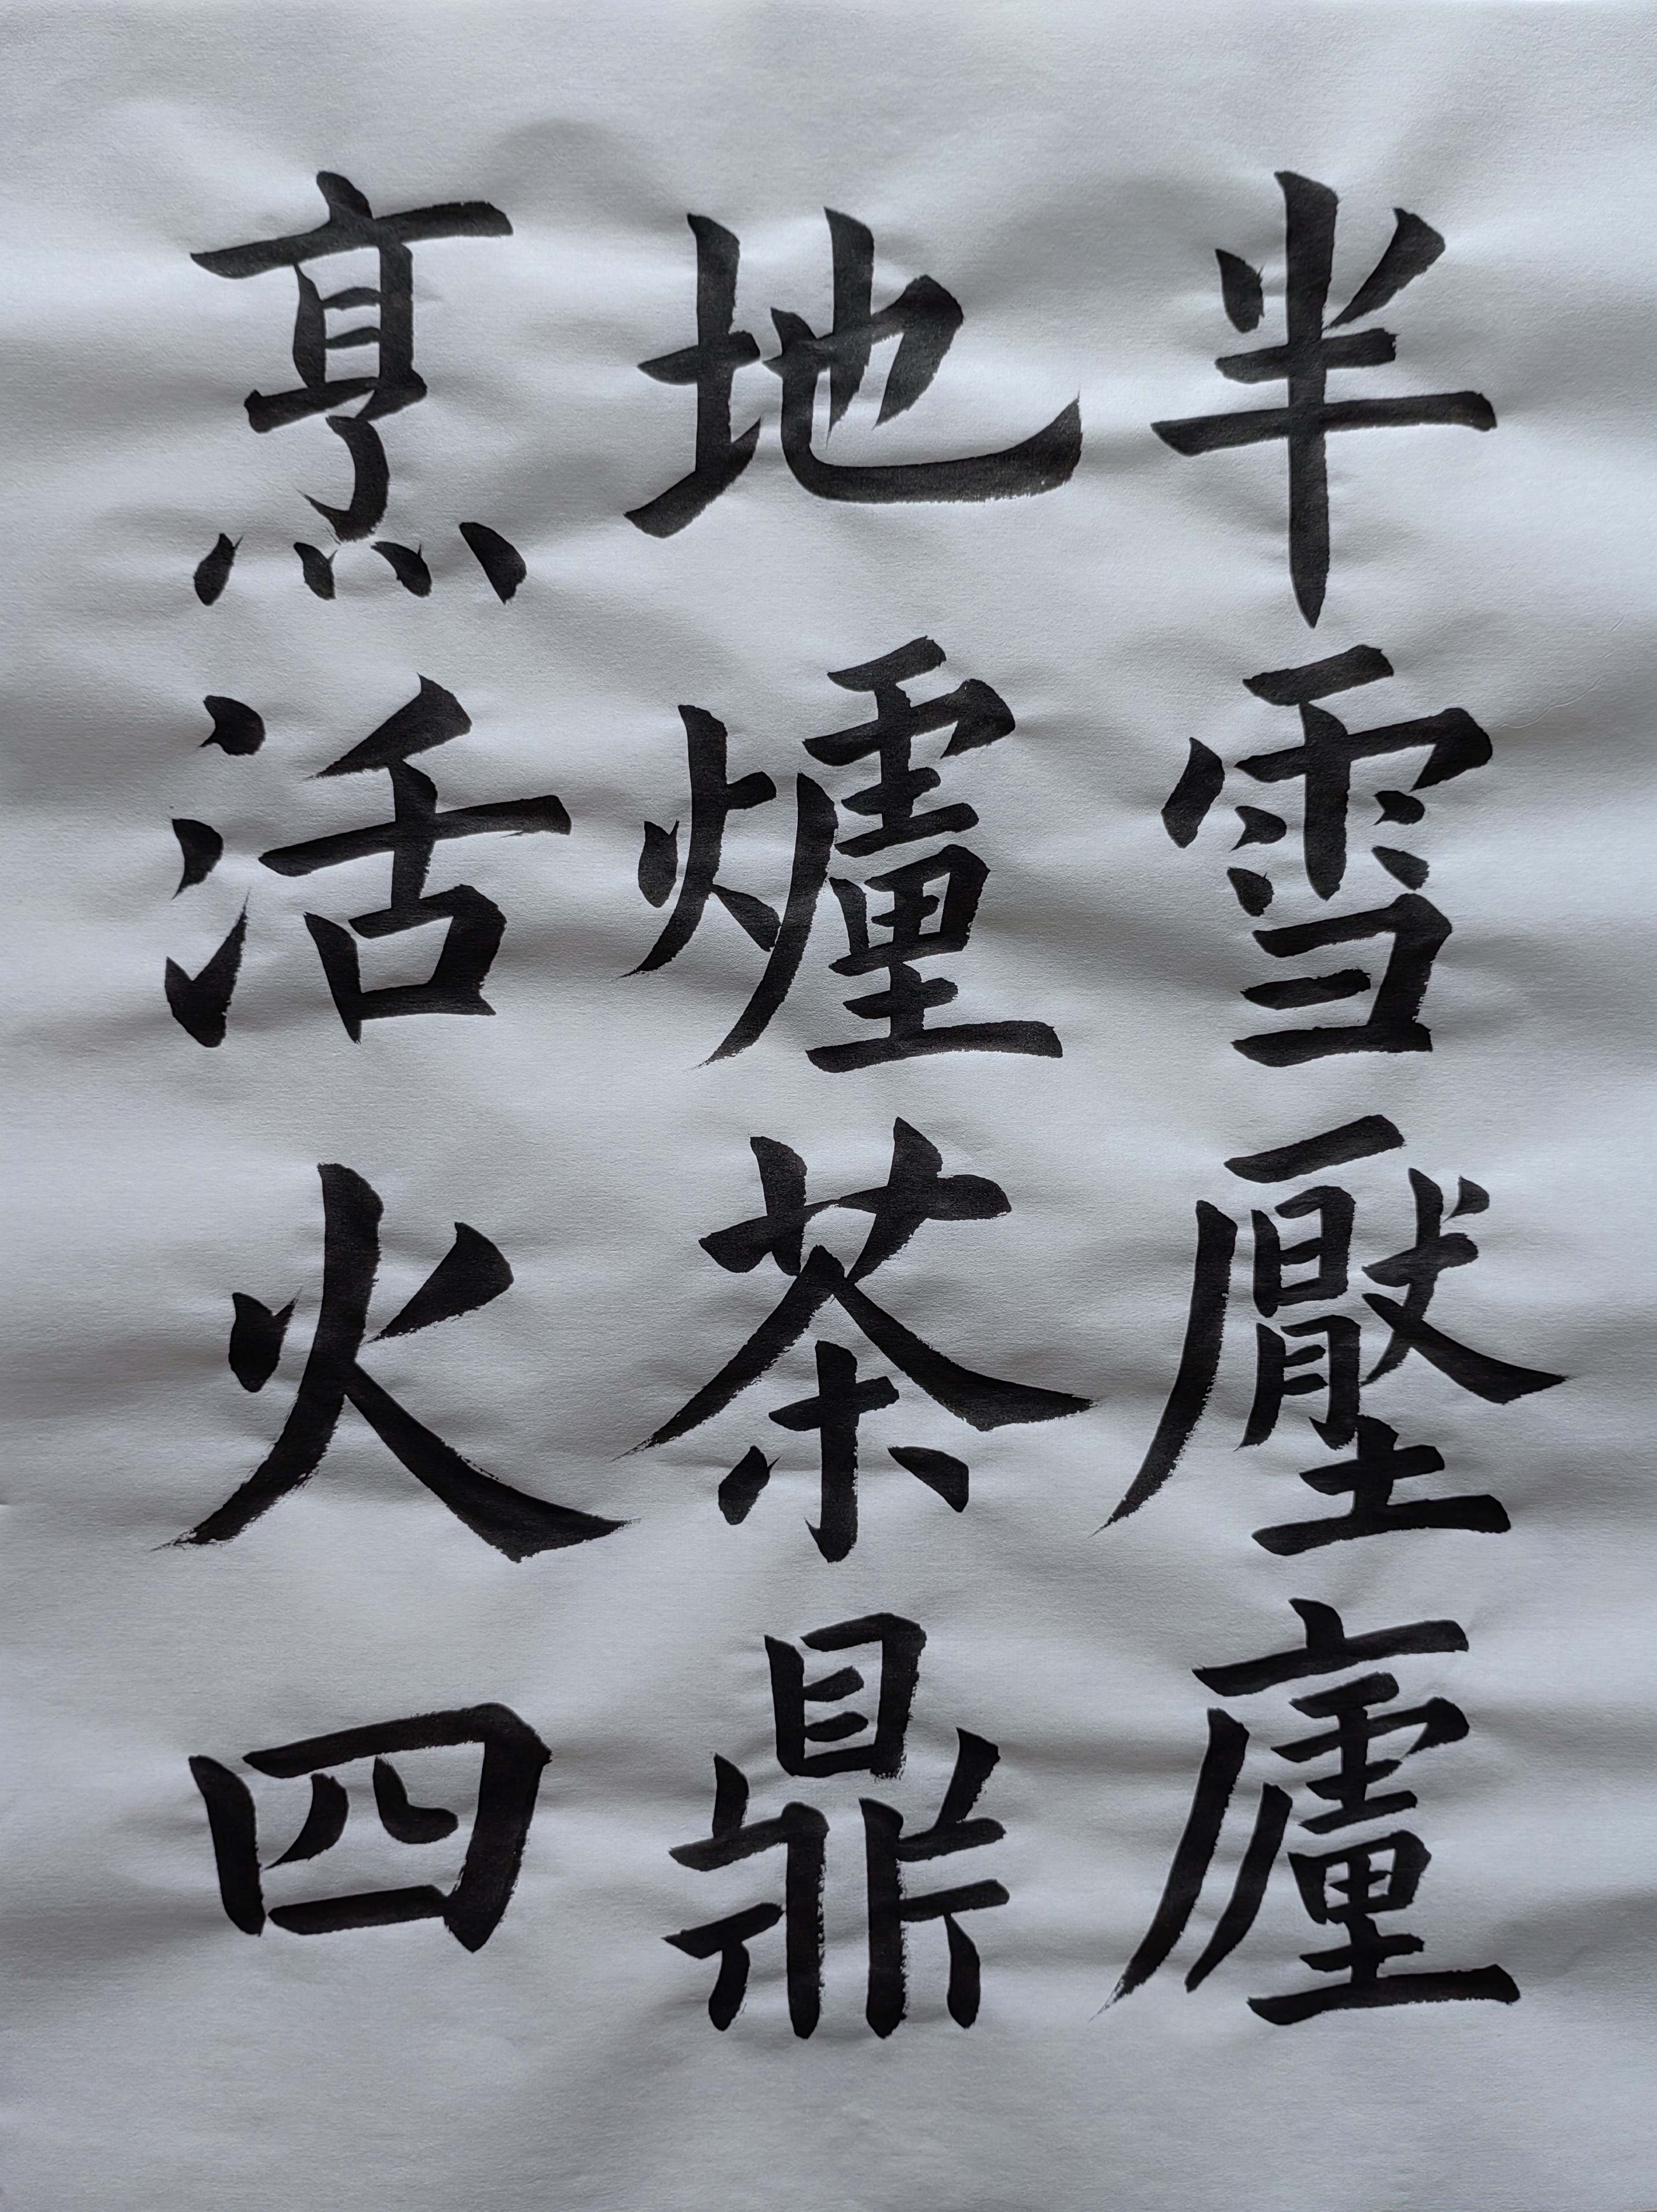 半雪壓廬
地爐茶鼎
烹活火四